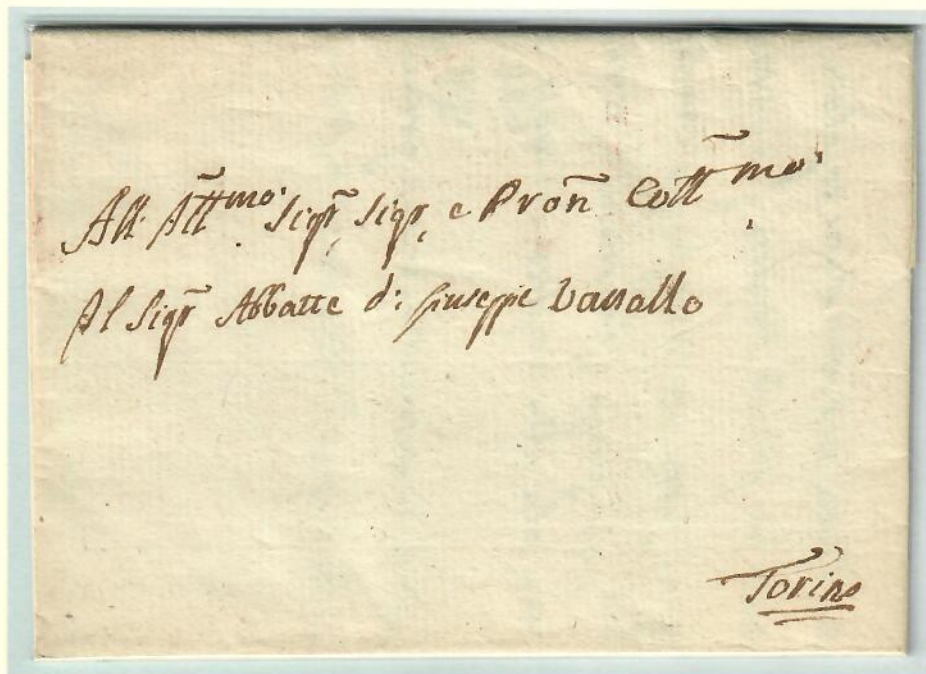 All: Ill͠mo: Sigr͠, Sigr͠, e Pron͠ Coll͠mo:
Al Sigr͠ Abbatte d: Giuseppe Vassallo
Torino